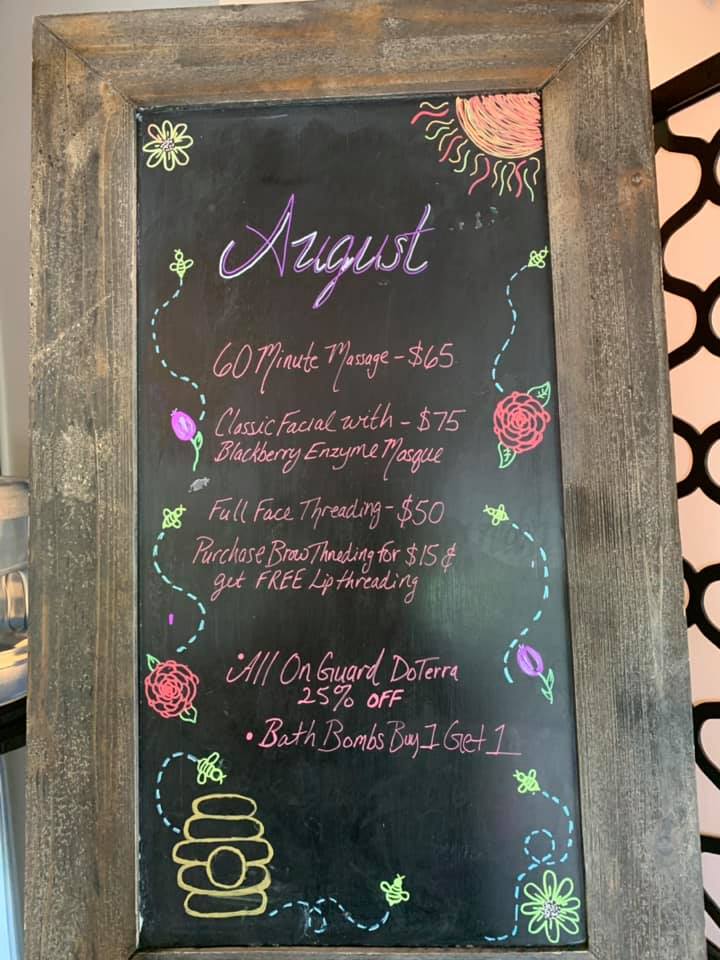 August
60 Minute Massage - $65
Classic Facial with - $75
Blackberry Enzyme Masque
Full Face Threading - $50
Purchase Brow Threding for $15 &
get FREE Lip threading
• All On Guard DoTerra
25% OFF
• Bath Bombs Buy 1 Get 1